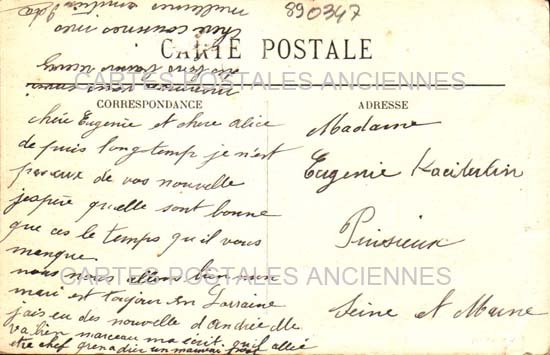 890347
CARTE POSTALE
CARTES POSTALES ANCIENNES
CORRESPONDANCE
ADRESSE
chère Eugenie et chere alice
depuis longtemp je n'est
pas eue de vos nouvelle
j'espère quelle sont bonne
que ces le temps qu'il vous
manque.
nous nous allons bien mon
mari est toujour en Lorraine
j'ais eu des nouvelle d'andrée elle
va bien marceau ma ecrit qu'il allée
etre chef grenadier un mauvai
Madame
Eugenie
Puisieux
Seine et Marne
CARTES POSTALES ANCIENNES